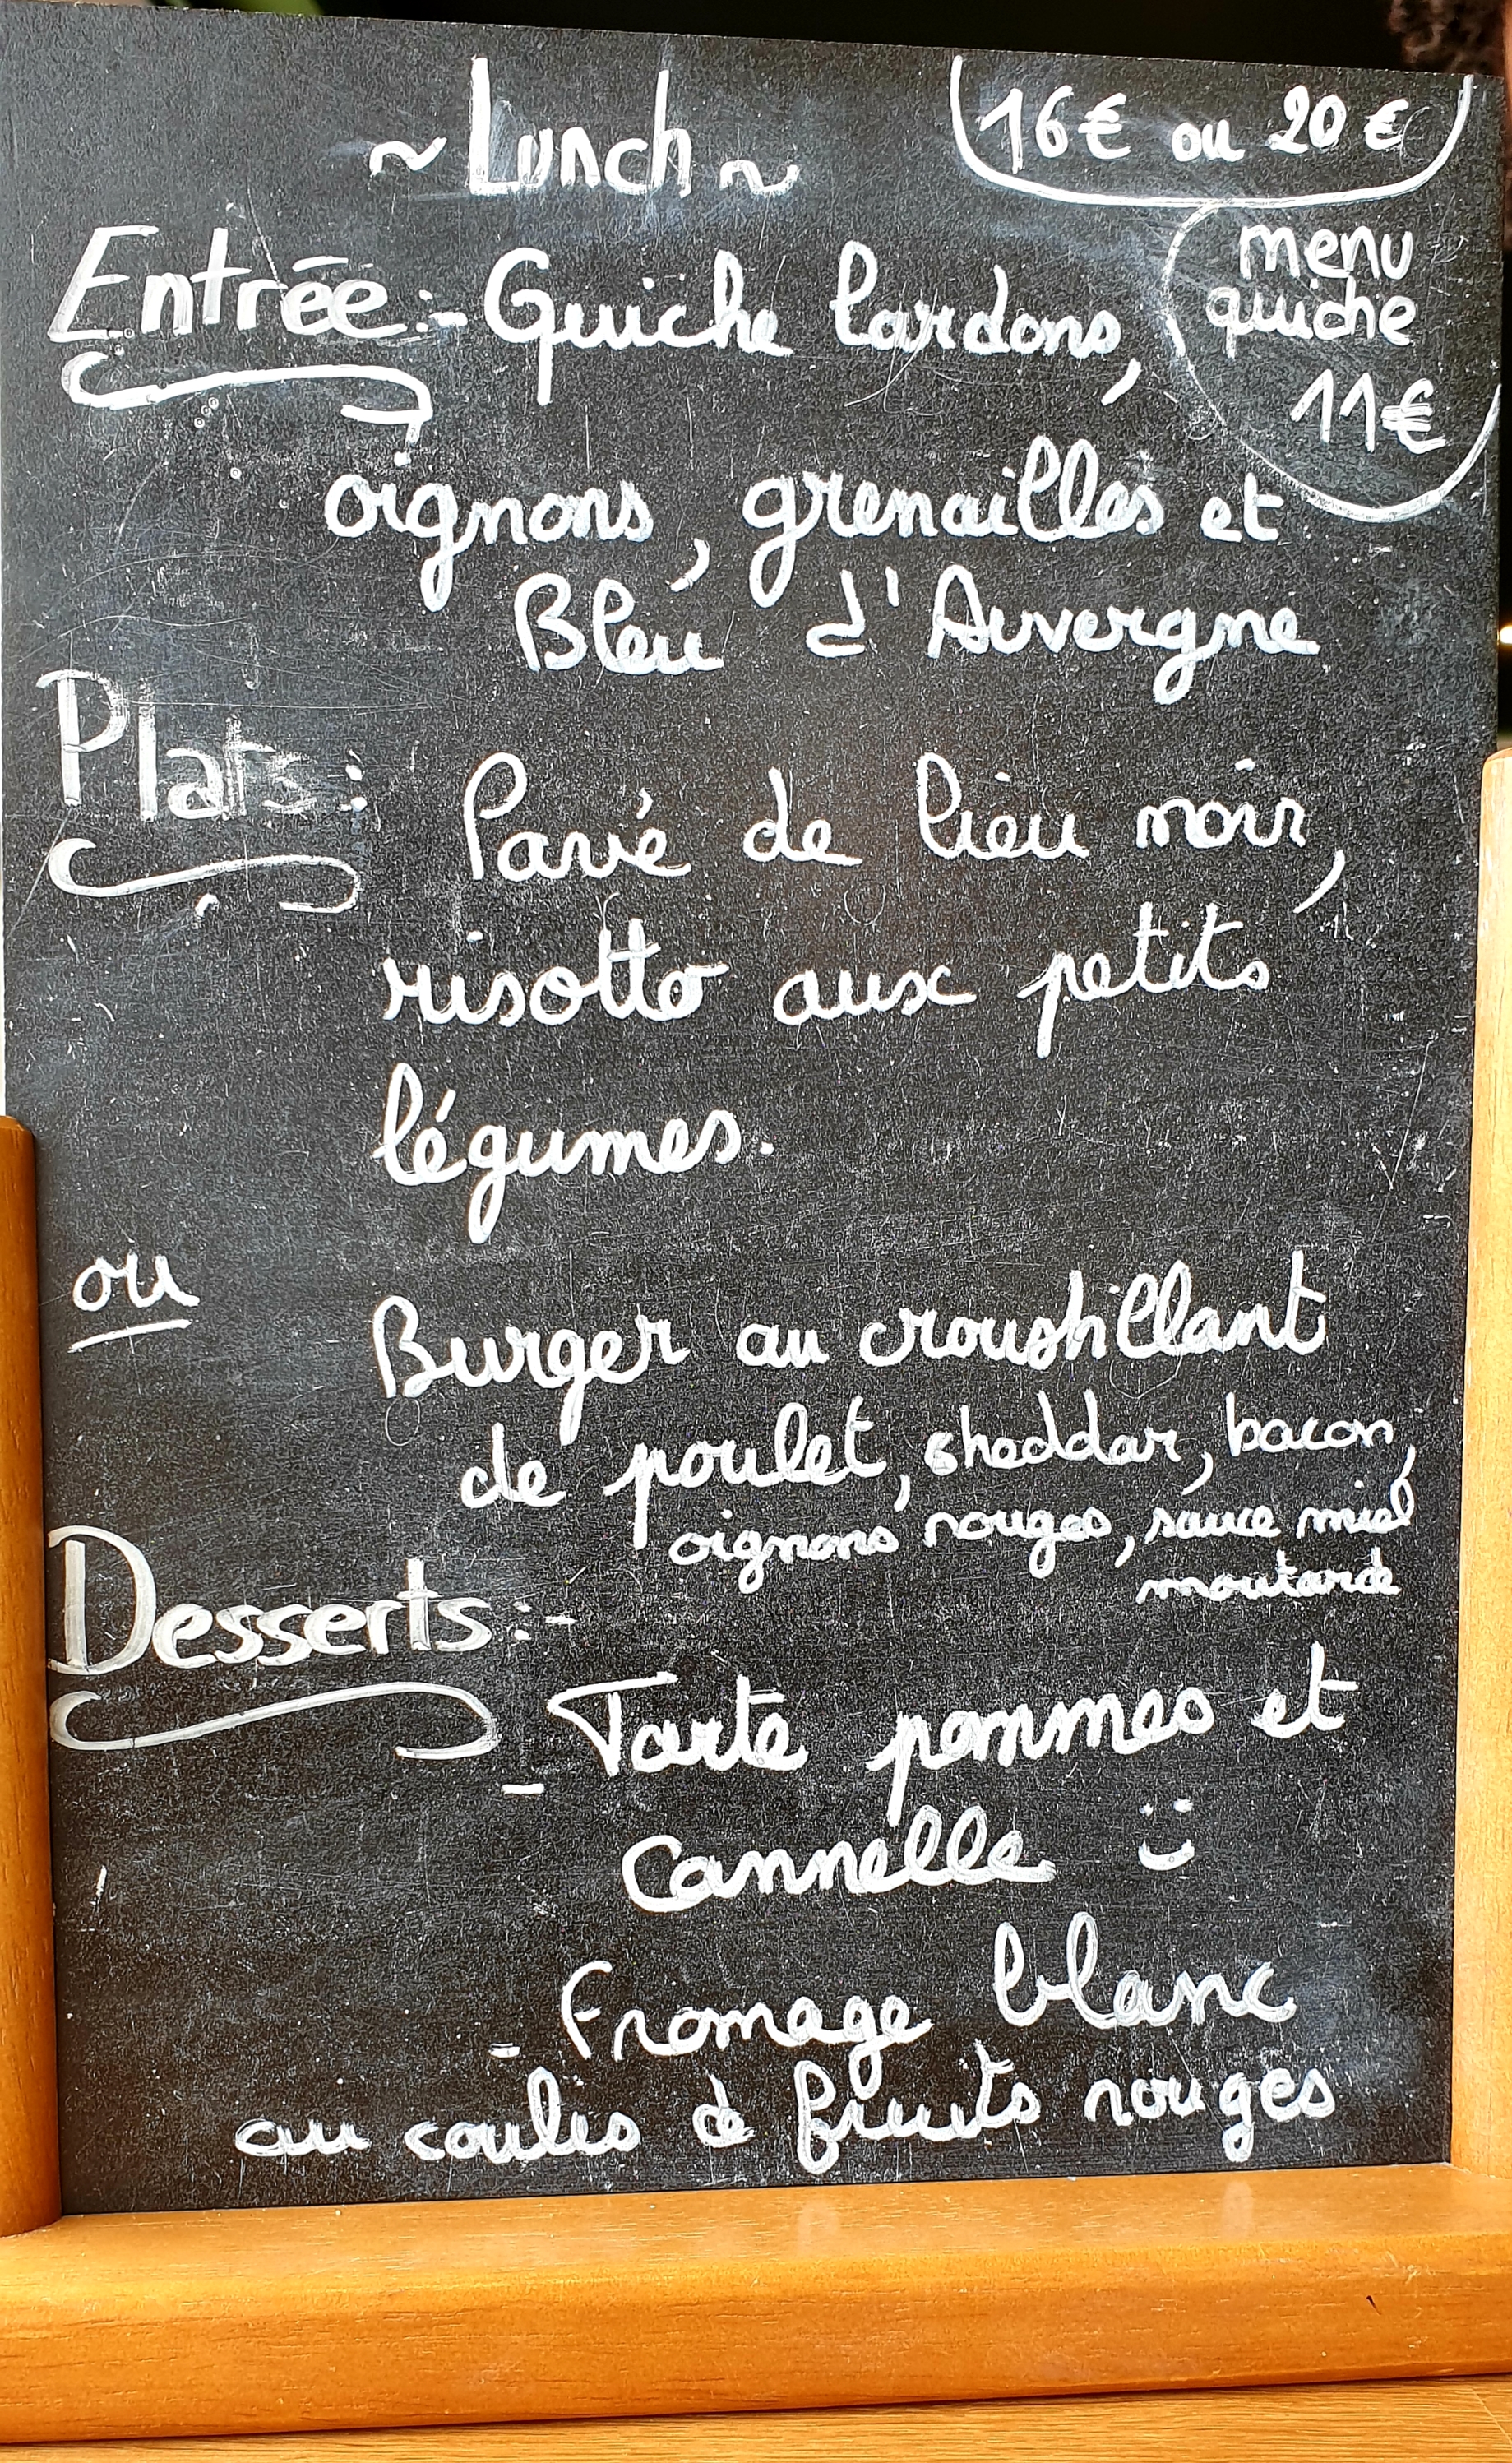 ~ Lunch ~
16€ ou 20€
menu
quiche
11€
Entrée:- Quiche lardons,
oignons, grenailles et
Bleu d'Auvergne
Plats: Pavé de lieu noir,
risotto aux petits
légumes.
ou
Burger au croustillant
de poulet, cheddar, bacon,
oignons rouges, sauce miel
moutarde
Desserts:-
- Tarte pommes et
Cannelle
- Fromage blanc
au coulis de fruits rouges